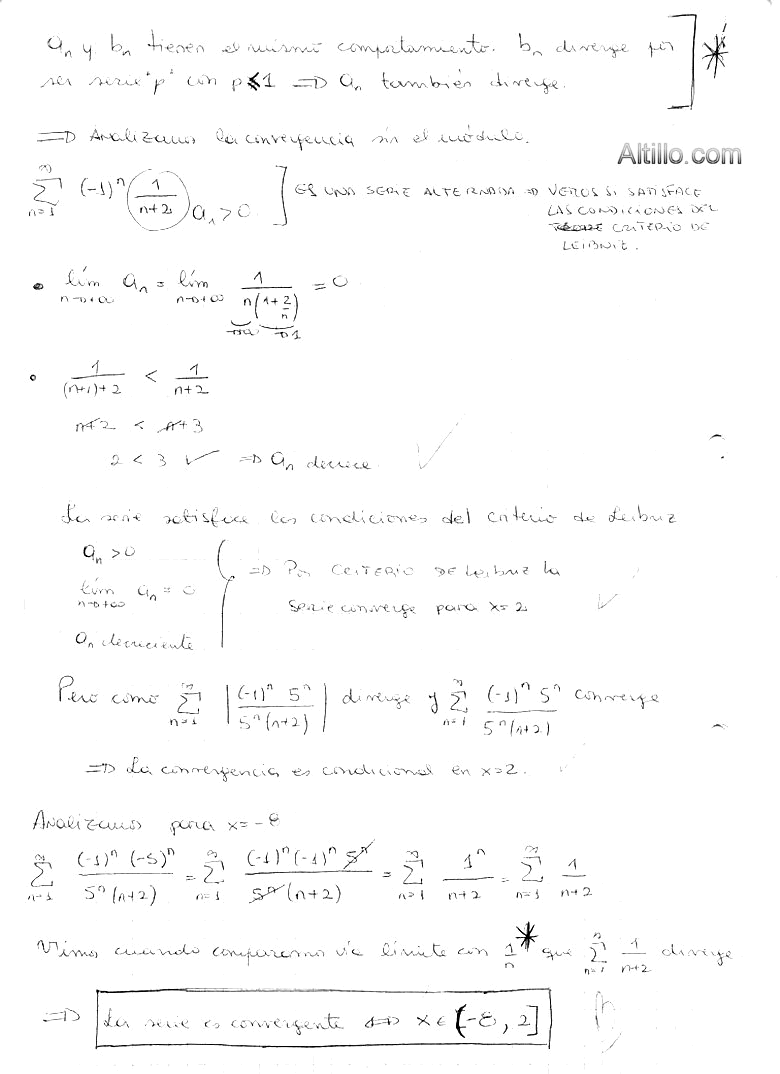 an y bn tienen el mismo comportamiento. bn diverge por
ser serie "p" con p≤1 => an también diverge.
=> Analizamos la convergencia sin el módulo.
Altillo.com
∑_{n=1}^{∞} (-1)^n (1/(n+2)) an > 0 ] ES UNA SERIE ALTERNADA => VEMOS SI SATISFACE
LAS CONDICIONES DEL
CRITERIO DE
LEIBNIZ.
• lím_{n→+∞} an = lím_{n→+∞} 1/(n(1+2/n)) = 0
→∞ →1
• 1/((n+1)+2) < 1/(n+2)
n+2 < n+3
2 < 3 ✓ => an decrece
La serie satisface las condiciones del criterio de Leibniz
an > 0
lím_{n→+∞} an = 0 => Por CRITERIO DE Leibniz la
serie converge para x=2
an decreciente
Pero como ∑_{n=1}^{∞} |(-1)^n 5^n/(5^n(n+2))| diverge y ∑_{n=1}^{∞} (-1)^n 5^n/(5^n(n+2)) converge
=> La convergencia es condicional en x=2.
Analizamos para x=-8
∑_{n=1}^{∞} (-1)^n (-5)^n/(5^n(n+2)) = ∑_{n=1}^{∞} (-1)^n (-1)^n 5^n/(5^n(n+2)) = ∑_{n=1}^{∞} 1^n/(n+2) = ∑_{n=1}^{∞} 1/(n+2)
Vimos cuando comparamos vía límite con 1/n * que ∑_{n=1}^{∞} 1/(n+2) diverge
=> La serie es convergente <=> x ∈ (-8, 2]